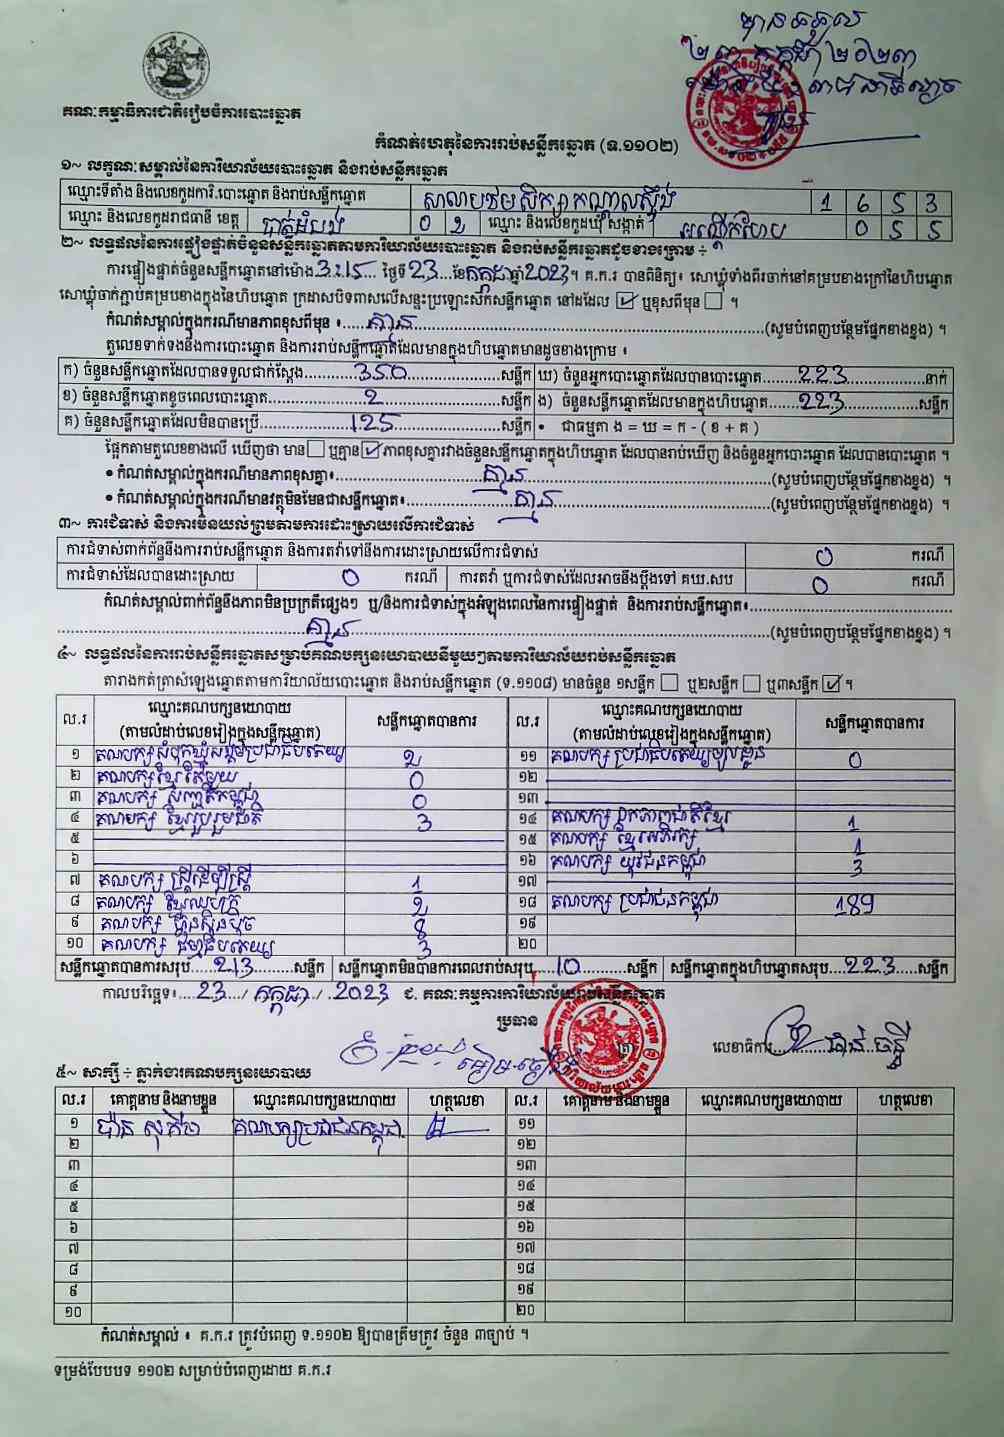 បានទទួល
២៣ កក្កដា ២០២៣
គណៈកម្មាធិការជាតិរៀបចំការបោះឆ្នោត
កំណត់ហេតុនៃការរាប់សន្លឹកឆ្នោត (ទ.១១០២)
១~ លក្ខណៈសម្គាល់នៃការិយាល័យបោះឆ្នោត និងរាប់សន្លឹកឆ្នោត
ឈ្មោះទីតាំង និងលេខកូដការិ.បោះឆ្នោត និងរាប់សន្លឹកឆ្នោត សាលាបឋមសិក្សាកណ្តាលស្ទឹង 1 6 5 3
ឈ្មោះ និងលេខកូដរាជធានី ខេត្ត បាត់ដំបង 0 2 ឈ្មោះ និងលេខកូដឃុំ សង្កាត់ អណ្តើកហែប 0 5 5
២~ លទ្ធផលនៃការផ្ទៀងផ្ទាត់ចំនួនសន្លឹកឆ្នោតតាមការិយាល័យបោះឆ្នោត និងរាប់សន្លឹកឆ្នោតដូចខាងក្រោម ÷
ការផ្ទៀងផ្ទាត់ចំនួនសន្លឹកឆ្នោតនៅម៉ោង 3:15 ថ្ងៃទី 23 ខែ កក្កដា ឆ្នាំ 2023 ។ គ.ក.រ បានពិនិត្យ៖ សោឃ្លុំទាំងពីរចាក់នៅគម្របខាងក្រៅនៃហិបឆ្នោត
សោឃ្លុំចាក់ភ្ជាប់គម្របខាងក្នុងនៃហិបឆ្នោត ក្រដាសបិទពាសលើសន្ទះប្រឡោះសឹកសន្លឹកឆ្នោត នៅដដែល ☑ ឬខុសពីមុន ☐ ។
កំណត់សម្គាល់ក្នុងករណីមានភាពខុសពីមុន ៖ គ្មាន (សូមបំពេញបន្ថែមផ្នែកខាងខ្នង) ។
តួលេខទាក់ទងនឹងការបោះឆ្នោត និងការរាប់សន្លឹកឆ្នោតដែលមានក្នុងហិបឆ្នោតមានដូចខាងក្រោម ៖
ក) ចំនួនសន្លឹកឆ្នោតដែលបានទទួលជាក់ស្តែង 350 សន្លឹក ឃ) ចំនួនអ្នកបោះឆ្នោតដែលបានបោះឆ្នោត 223 នាក់
ខ) ចំនួនសន្លឹកឆ្នោតខូចពេលបោះឆ្នោត 2 សន្លឹក ង) ចំនួនសន្លឹកឆ្នោតដែលមានក្នុងហិបឆ្នោត 223 សន្លឹក
គ) ចំនួនសន្លឹកឆ្នោតដែលមិនបានប្រើ 125 សន្លឹក • ជាធម្មតា ង = ឃ = ក - ( ខ + គ )
ផ្អែកតាមតួលេខខាងលើ ឃើញថា មាន ☐ ឬគ្មាន ☑ ភាពខុសគ្នារវាងចំនួនសន្លឹកឆ្នោតក្នុងហិបឆ្នោត ដែលបានរាប់ឃើញ និងចំនួនអ្នកបោះឆ្នោត ដែលបានបោះឆ្នោត ។
• កំណត់សម្គាល់ក្នុងករណីមានភាពខុសគ្នា៖ គ្មាន (សូមបំពេញបន្ថែមផ្នែកខាងខ្នង) ។
• កំណត់សម្គាល់ក្នុងករណីមានវត្ថុមិនមែនជាសន្លឹកឆ្នោត៖ គ្មាន (សូមបំពេញបន្ថែមផ្នែកខាងខ្នង) ។
៣~ ការជំទាស់ និងការមិនយល់ព្រមតាមការដោះស្រាយលើការជំទាស់
ការជំទាស់ពាក់ព័ន្ធនឹងការរាប់សន្លឹកឆ្នោត និងការតវ៉ាទៅនឹងការដោះស្រាយលើការជំទាស់ 0 ករណី
ការជំទាស់ដែលបានដោះស្រាយ 0 ករណី ការតវ៉ា ឬការជំទាស់ដែលអាចនឹងប្តឹងទៅ គឃ.សប 0 ករណី
កំណត់សម្គាល់ពាក់ព័ន្ធនឹងភាពមិនប្រក្រតីផ្សេងៗ ឬ/និងការជំទាស់ក្នុងអំឡុងពេលនៃការផ្ទៀងផ្ទាត់ និងការរាប់សន្លឹកឆ្នោត៖
គ្មាន (សូមបំពេញបន្ថែមផ្នែកខាងខ្នង) ។
៤~ លទ្ធផលនៃការរាប់សន្លឹកឆ្នោតសម្រាប់គណបក្សនយោបាយនីមួយៗតាមការិយាល័យរាប់សន្លឹកឆ្នោត
តារាងកត់ត្រាសំឡេងឆ្នោតតាមការិយាល័យបោះឆ្នោត និងរាប់សន្លឹកឆ្នោត (ទ.១១០៨) មានចំនួន ១សន្លឹក ☐ ឬ២សន្លឹក ☐ ឬ៣សន្លឹក ☑ ។
ល.រ ឈ្មោះគណបក្សនយោបាយ (តាមលំដាប់លេខរៀងក្នុងសន្លឹកឆ្នោត) សន្លឹកឆ្នោតបានការ ល.រ ឈ្មោះគណបក្សនយោបាយ (តាមលំដាប់លេខរៀងក្នុងសន្លឹកឆ្នោត) សន្លឹកឆ្នោតបានការ
១ គណបក្សសំបុកឃ្មុំសង្គមប្រជាធិបតេយ្យ 2 ១១ គណបក្ស ប្រជាធិបតេយ្យមូលដ្ឋាន 0
២ គណបក្សខ្មែរតែមួយ 0 ១២
៣ គណបក្ស សញ្ជាតិកម្ពុជា 0 ១៣
៤ គណបក្ស ខ្មែររួបរួមជាតិ 3 ១៤ គណបក្ស ឯកភាពជាតិខ្មែរ 1
៥ ១៥ គណបក្ស ខ្មែរអភិរក្ស 1
៦ ១៦ គណបក្ស យុវជនកម្ពុជា 3
៧ គណបក្ស ស្ត្រីដើម្បីស្ត្រី 1 ១៧
៨ គណបក្ស ខ្មែរឈប់ក្រ 2 ១៨ គណបក្ស ប្រជាជនកម្ពុជា 189
៩ គណបក្ស ហ៊្វុនស៊ិនប៉ិច 8 ១៩
១០ គណបក្ស ធម្មាធិបតេយ្យ 3 ២០
សន្លឹកឆ្នោតបានការសរុប 213 សន្លឹក សន្លឹកឆ្នោតមិនបានការពេលរាប់សរុប 10 សន្លឹក សន្លឹកឆ្នោតក្នុងហិបឆ្នោតសរុប 223 សន្លឹក
កាលបរិច្ឆេទ៖ 23 / កក្កដា / 2023 ជ. គណៈកម្មការការិយាល័យរាប់សន្លឹកឆ្នោត
ប្រធាន
លេខាធិការ
៥~ សាក្សី ÷ ភ្នាក់ងារគណបក្សនយោបាយ
ល.រ គោត្តនាម និងនាមខ្លួន ឈ្មោះគណបក្សនយោបាយ ហត្ថលេខា ល.រ គោត្តនាម និងនាមខ្លួន ឈ្មោះគណបក្សនយោបាយ ហត្ថលេខា
១ គណបក្សប្រជាជនកម្ពុជា ១១
២ ១២
៣ ១៣
៤ ១៤
៥ ១៥
៦ ១៦
៧ ១៧
៨ ១៨
៩ ១៩
១០ ២០
កំណត់សម្គាល់ ៖ គ.ក.រ ត្រូវបំពេញ ទ.១១០២ ឱ្យបានត្រឹមត្រូវ ចំនួន ៣ច្បាប់ ។
ទម្រង់បែបបទ ១១០២ សម្រាប់បំពេញដោយ គ.ក.រ